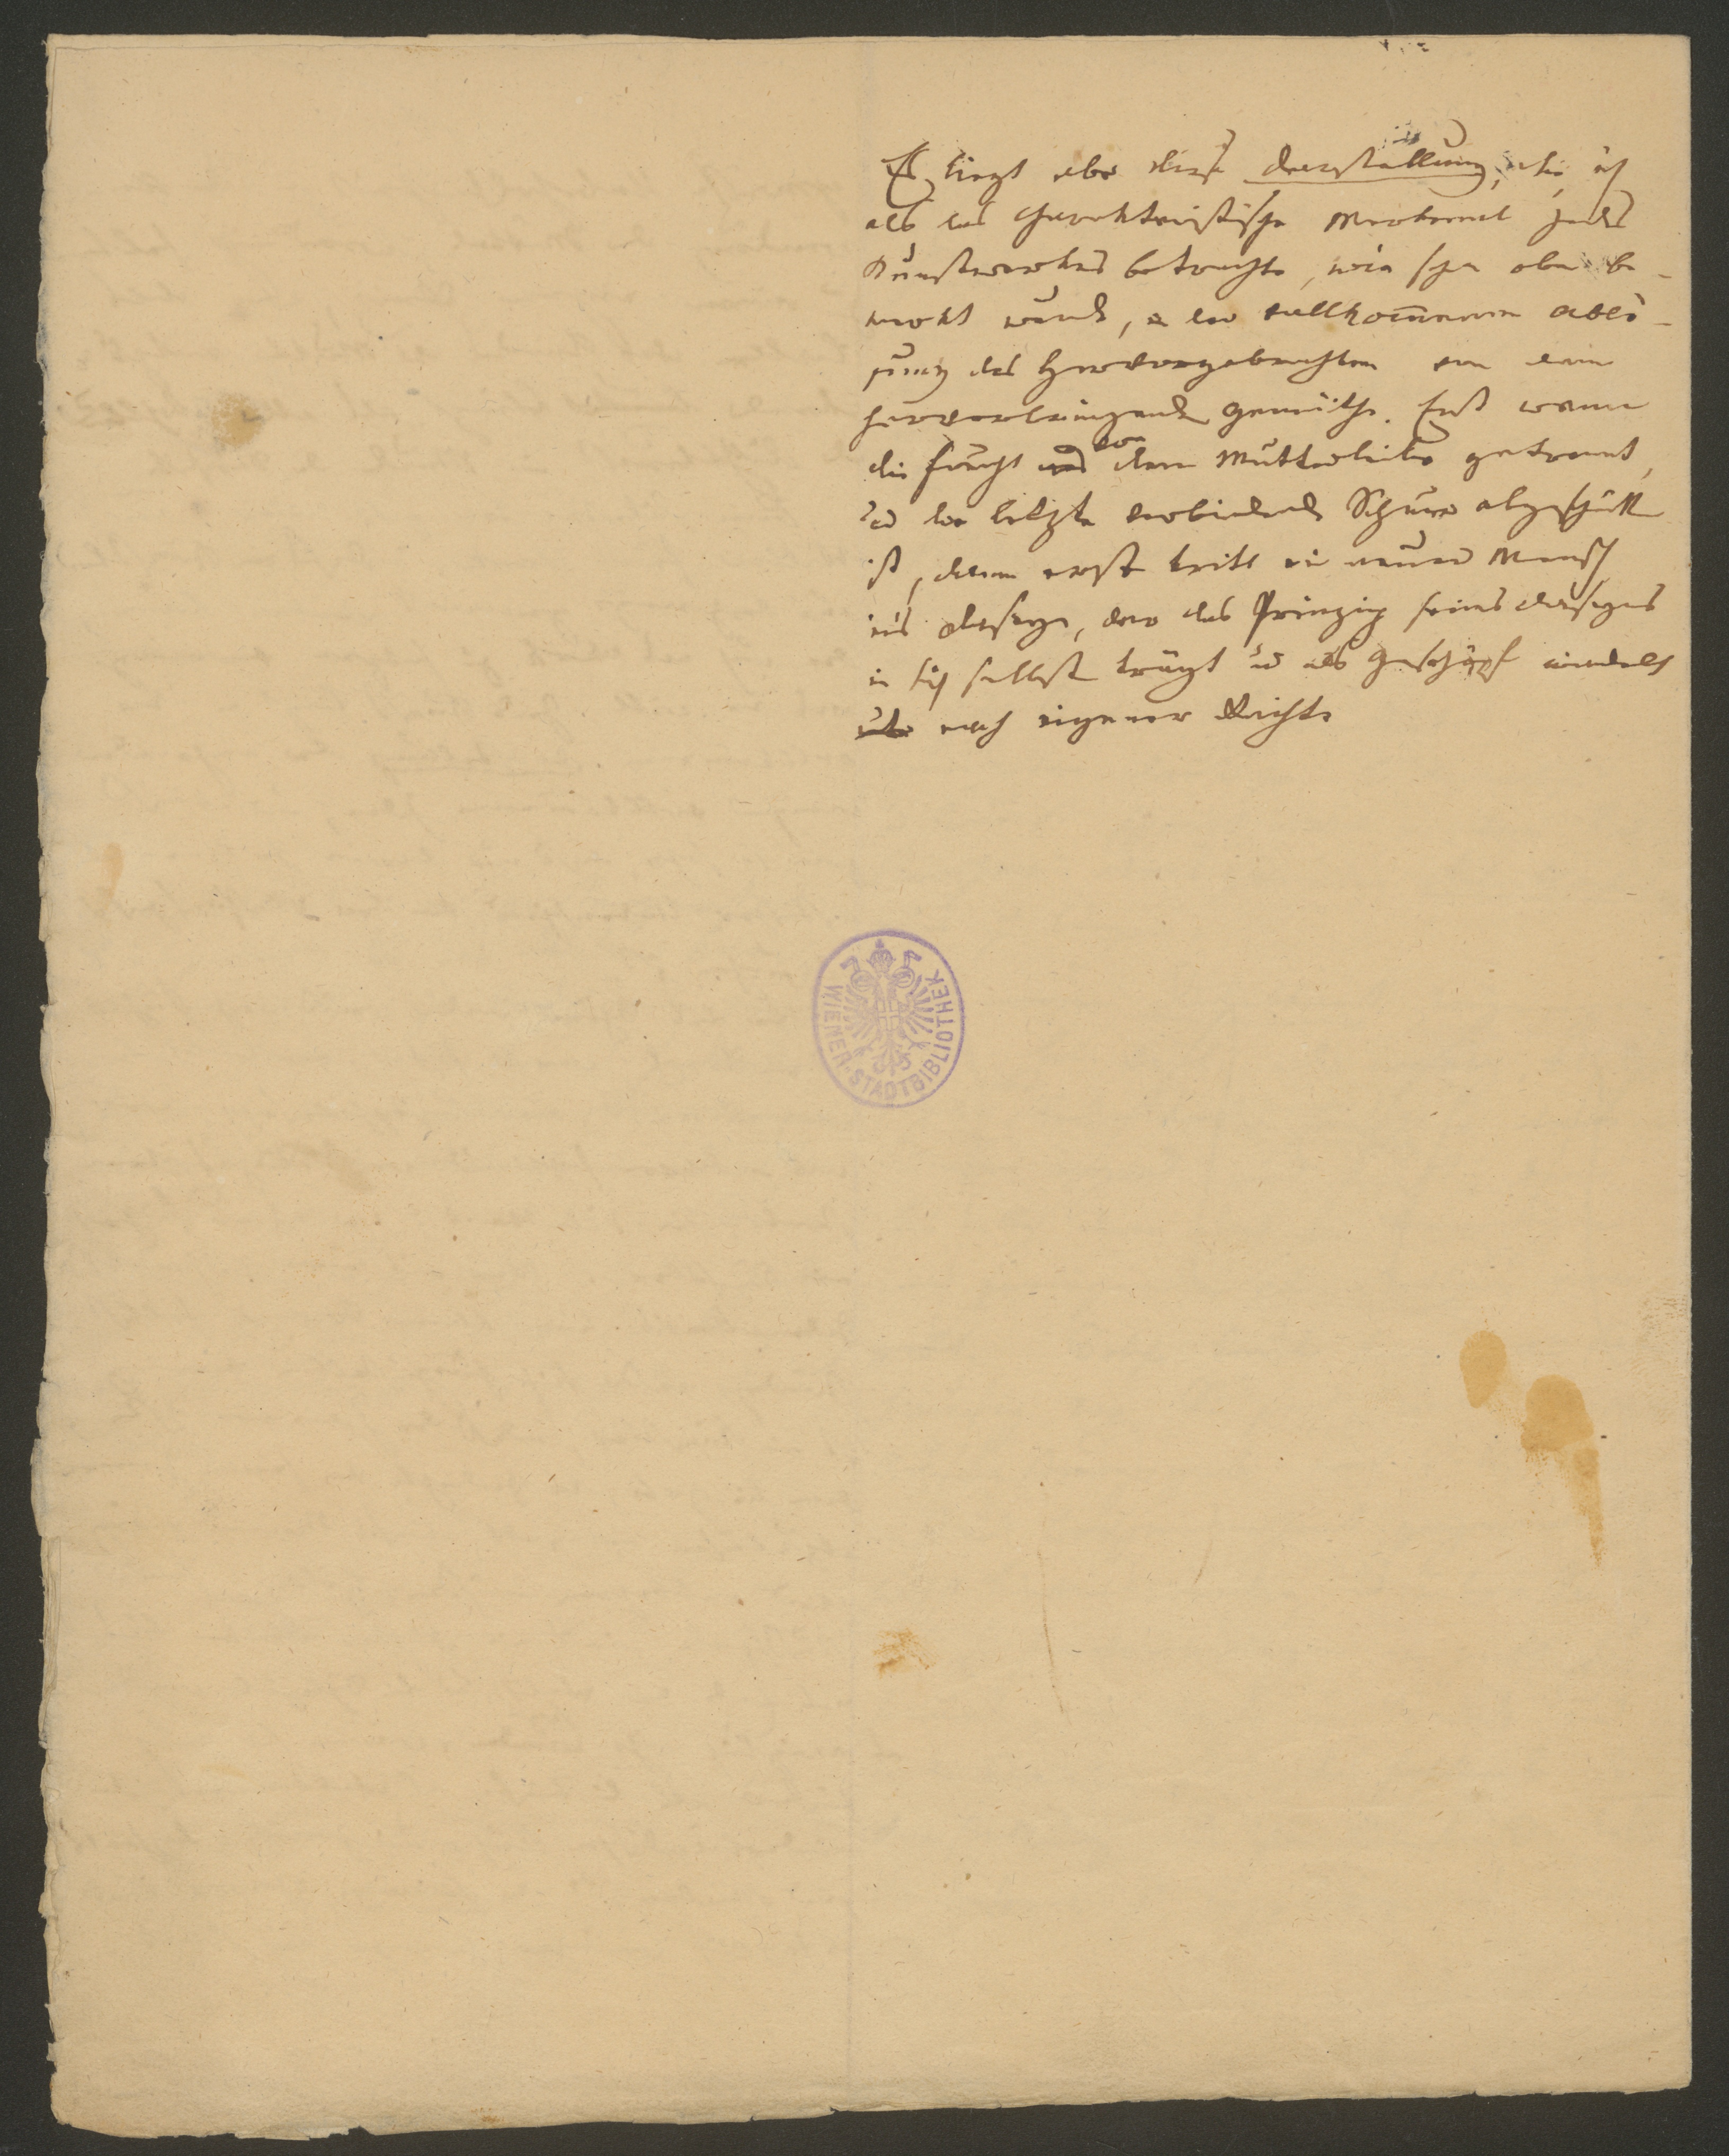 Es liegt aber diese Darstellung, die ich
als das charakteristische Merkmal jedes
Kunstwerkes betrachte, wie schon oben be-
merkt wurde, in der vollkom̄enen Ablö-
sung des Hervorgebrachten von dem
hervorbringenden Gemüthe. Erst wenn
die Frucht von dem Mutterleibe getrennt,
und die letzte verbindende Schnur abgeschnitten
ist, dann erst tritt ein neuer Mensch
ins Daseyn, der das Prinzip seines Daseyns
in sich selbst trägt und als Geschöpf wandelt
nach eigener Richte
WIENER-STADTBIBLIOTHEK